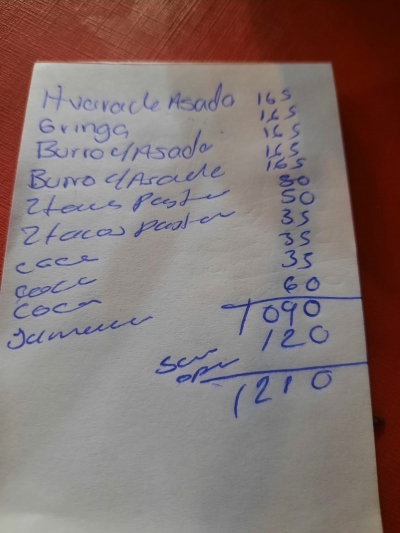 Huarache Asada 165
Gringa 165
Burro c/Asada 165
165
Burro c/Asade 165
2tacos Pastor 50
2tacos pastor 50
coca 35
coca 35
coca 35
Jamaica 60
1090
120
1210